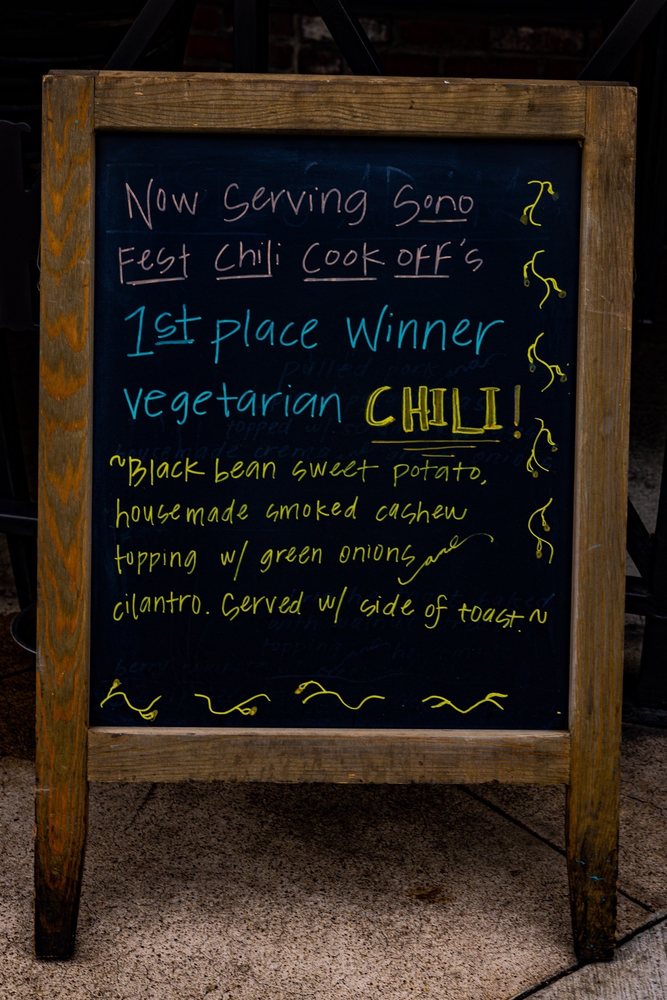 Now Serving Sono
Fest Chili Cook off's
1st place Winner
vegetarian CHILI!
~Black bean sweet potato,
housemade smoked cashew
topping w/ green onions and
cilantro. Served w/ side of toast.~